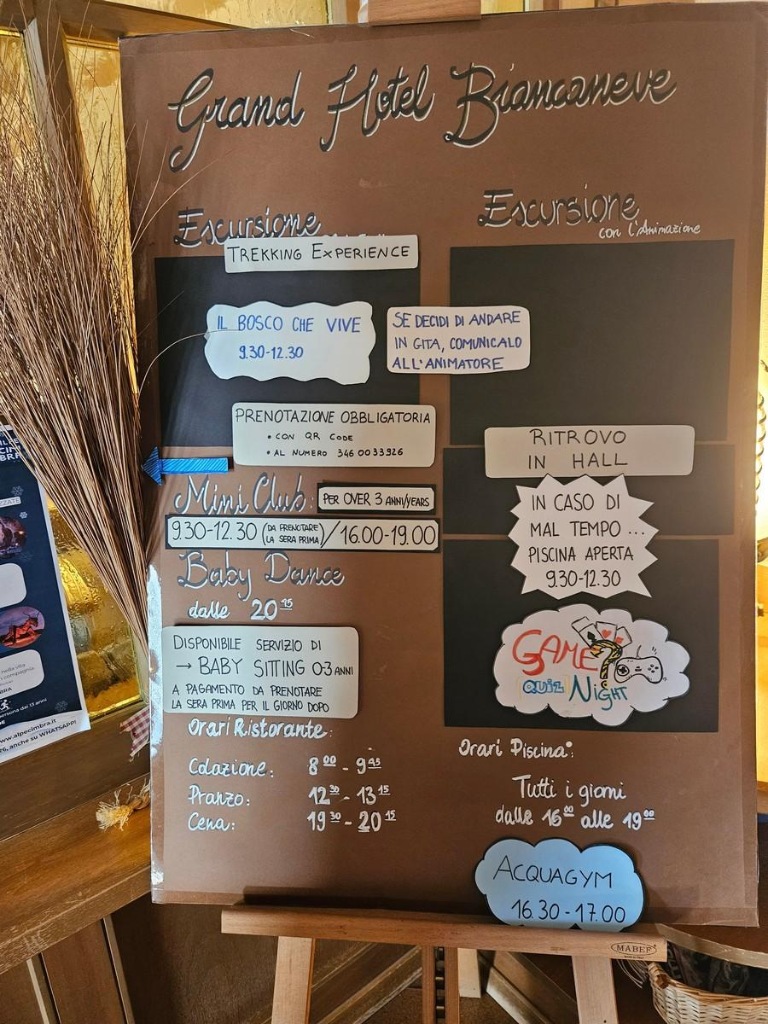 Grand Hotel Biancaneve
Escursione
TREKKING EXPERIENCE
IL BOSCO CHE VIVE
9.30-12.30
SE DECIDI DI ANDARE
IN GITA, COMUNICALO
ALL'ANIMATORE
PRENOTAZIONE OBBLIGATORIA
• CON QR CODE
• AL NUMERO 346 0033926
Mini Club:
PER OVER 3 ANNI/YEARS
9.30-12.30 (DA PRENOTARE LA SERA PRIMA) / 16.00-19.00
Baby Dance
dalle 20 15
DISPONIBILE SERVIZIO DI
→ BABY SITTING 0-3 ANNI
A PAGAMENTO DA PRENOTARE
LA SERA PRIMA PER IL GIORNO DOPO
Orari Ristorante:
Colazione: 8 00 - 9 45
Pranzo: 12 30 - 13 15
Cena: 19 30 - 20 15
Escursione
con l'Animazione
RITROVO
IN HALL
IN CASO DI
MAL TEMPO ...
PISCINA APERTA
9.30-12.30
GAME ?
QUIZ NIGHT
Orari Piscina:
Tutti i giorni
dalle 16 00 alle 19 00
ACQUAGYM
16.30-17.00
MABEF
www.alpecimbra.it
anche su WHATSAPP!